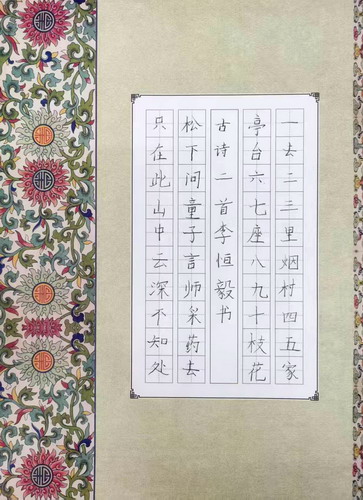 一去二三里烟村四五家
亭台六七座八九十枝花
古诗二首李恒毅书
松下问童子言师采药去
只在此山中云深不知处